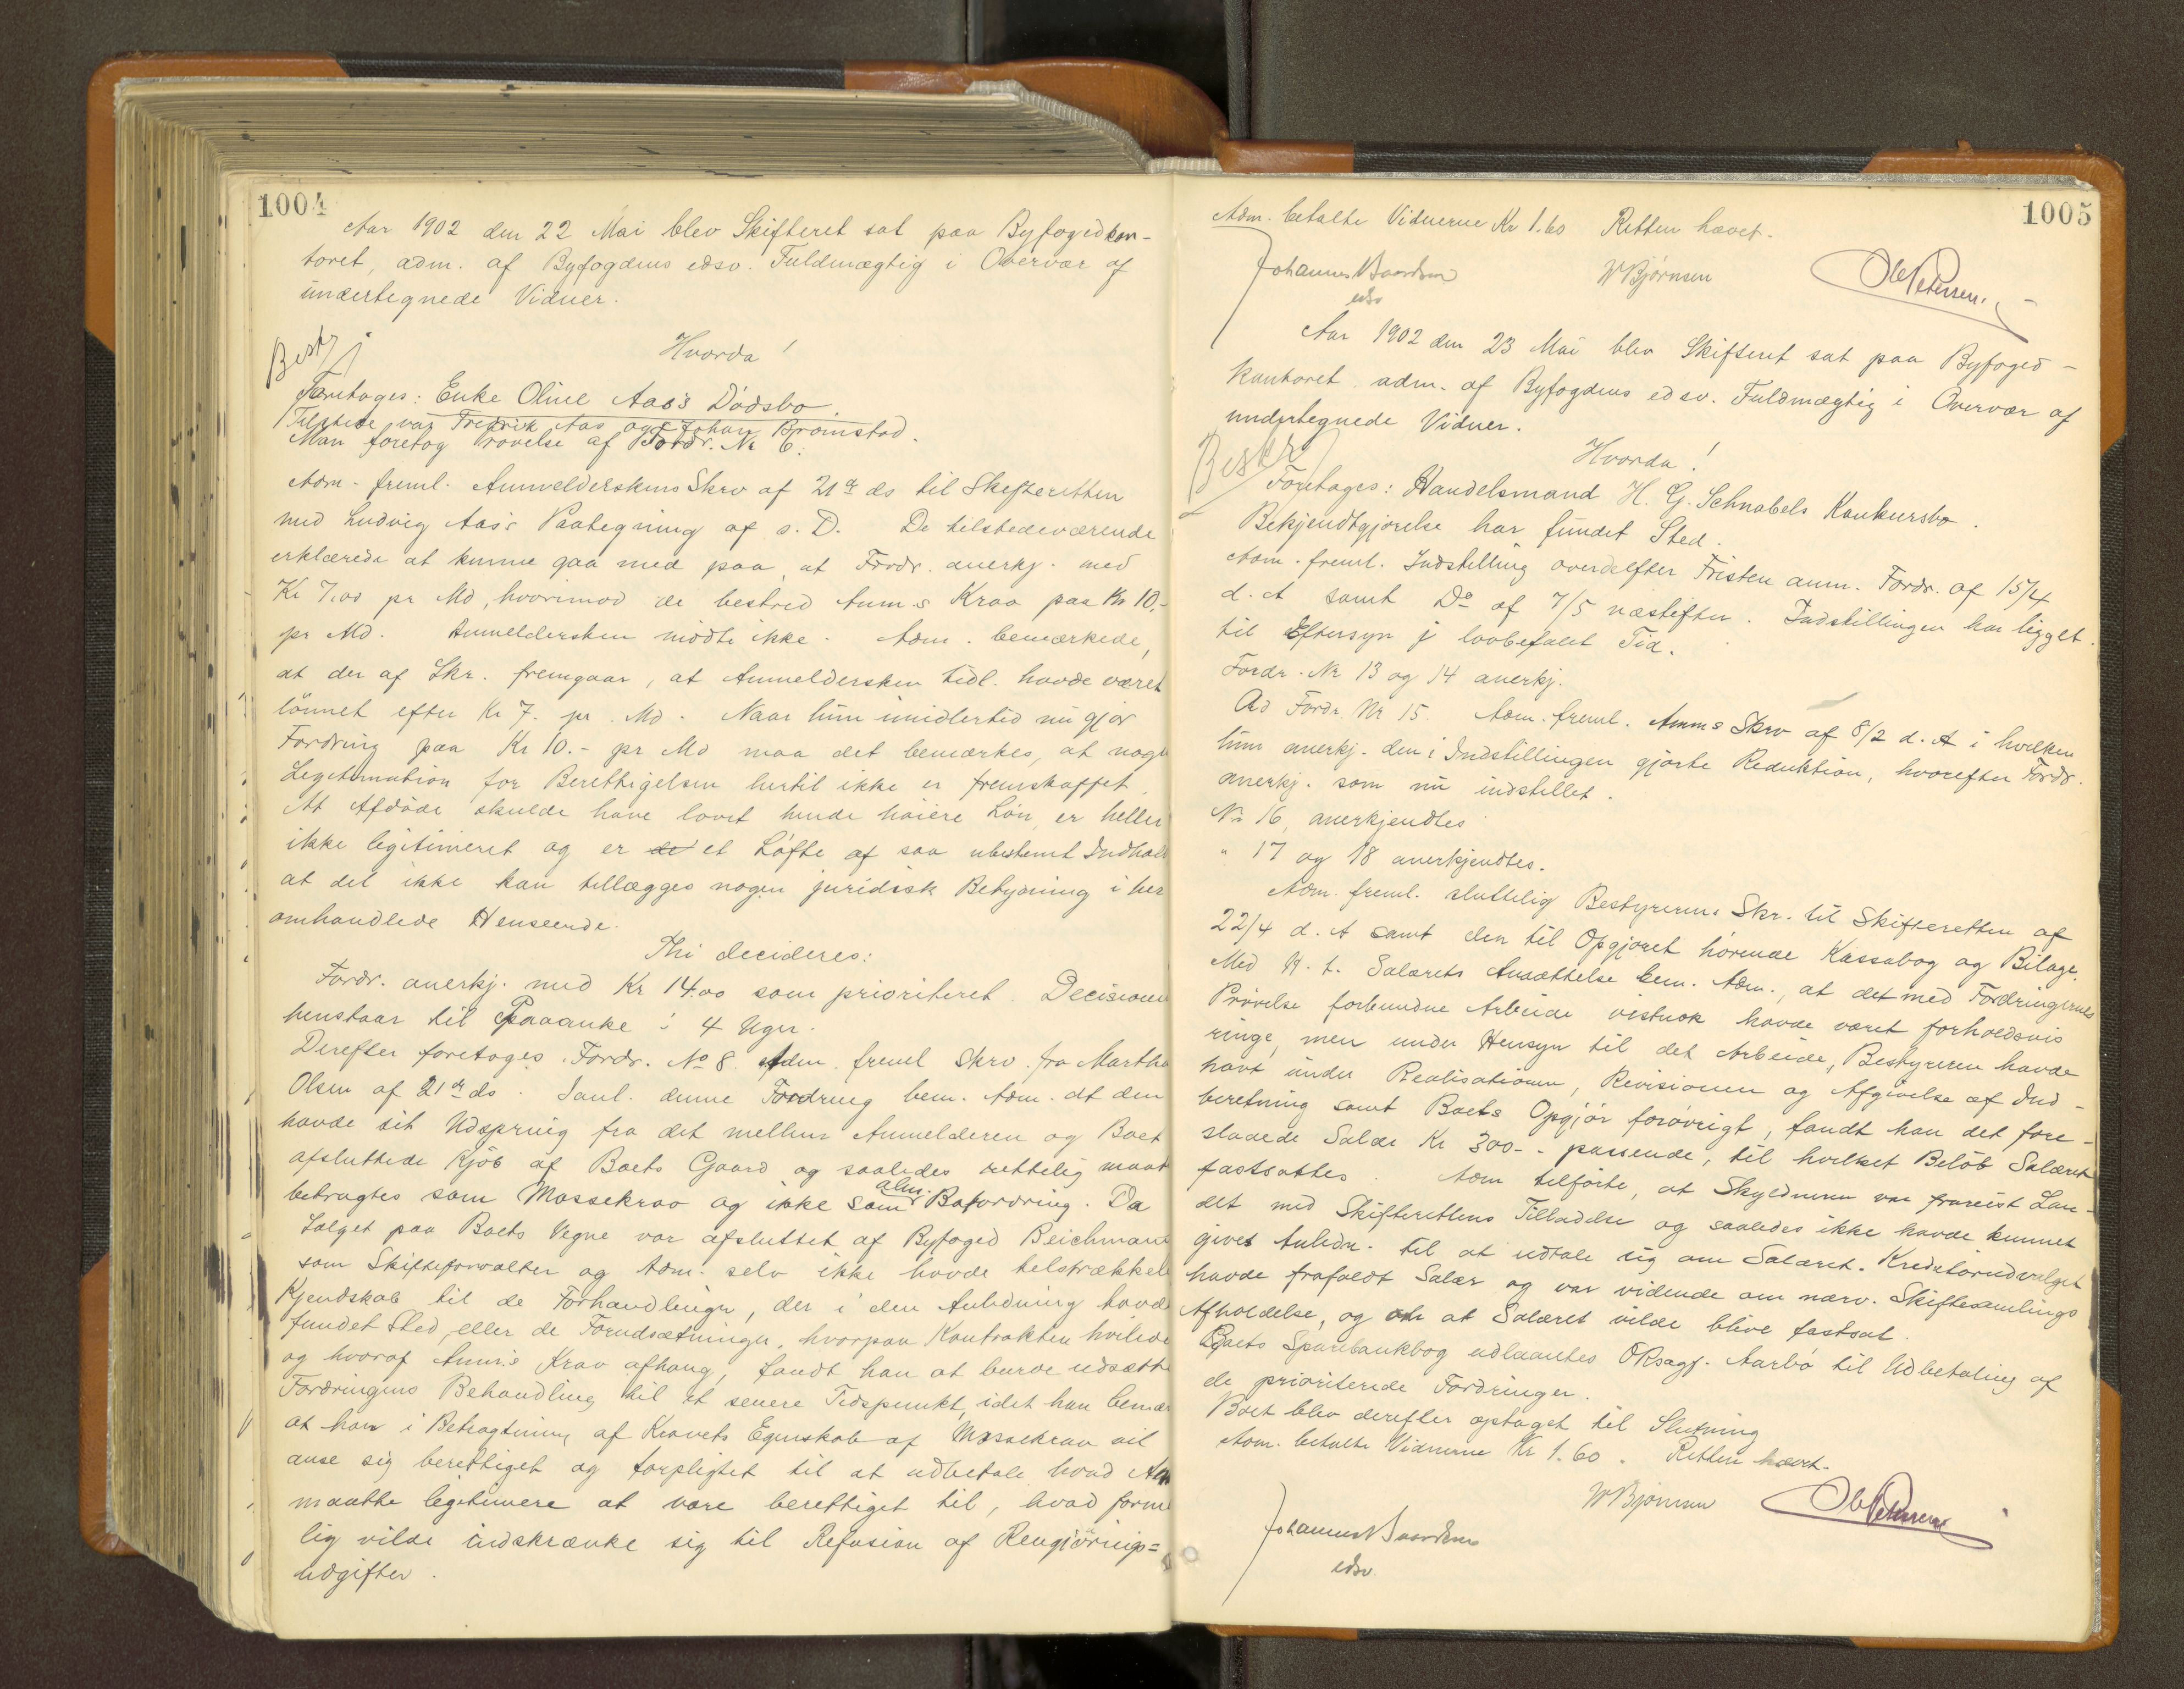 1004
Aar 1902 den 22 Mai blev Skifteret sat paa Byfogedkon-
toret, adm. af Byfogdens edsv. Fuldmægtig i Overvær af
undertegnede Vidner.
Hvorda!
Bestj
Foretages: Enke Oline Aas's Dødsbo.
Tilstede var Fredrik Aas og Johan Bromstad.
Man foretog Prøvelse af Fordr. No 6.
Adm. freml. Anmelderskens Skrv af 21de ds til Skifteretten
med Ludvig Aas's Paategning af s. D. De tilstedeværende
erklærede at kunne gaa med paa, at Fordr. anerkj. med
Kr 7.00 pr Md, hvorimod de bestred Anm.s Krav paa Kr 10.-
pr Md. Anmeldersken mødte ikke. Adm. bemærkede,
at der af Skr. fremgaar, at Anmeldersken tidl. havde været
lønnet efter Kr 7. pr. Md. Naar hun imidlertid nu gjør
Fordring paa Kr 10.- pr Md maa det bemærkes, at nogen
Legitimation for Berettigelsen hertil ikke er fremskaffet.
At Afdøde skulde have lovet hende høiere Løn, er heller
ikke legitimeret og er de et Løfte af saa ubestemt Indhold
at det ikke kan tillægges nogen juridisk Betydning i her
omhandlede Henseende.
Thi decideres:
Fordr. anerkj. med Kr 14.00 som prioriteret. Decisionen
henstaar til Paaanke i 4 Uger.
Derefter foretoges Fordr. No 8. Adm. freml Skrv. fra Martha
Olsen af 21de ds. Saml. denne Fordring bem. Adm. at den
havde sit Udspring fra det mellem Anmelderen og Boet
afsluttede Kjøb af Boets Gaard og saaledes rettelig maat
betragtes som Massekrav og ikke som alm. Bofordring. Da
Salget paa Boets Vegne var afsluttet af Byfoged Beichmann
som Skifteforvalter og Adm. selv ikke havde tilstrækkeli
Kjendskab til de Forhandlinger, der i den Anledning havde
fundet Sted, eller de Forudsætninger, hvorpaa Kontrakten hvilede
og hvoraf Anm.s Krav afhang, fandt han at burde udsætte
Fordringens Behandling til et senere Tidspunkt, idet han bemær
at han i Betragtning af Kravets Egenskab af Massekrav vil
anse sig berettiget og forpligtet til at udbetale hvad Anm
maatte legitimere at være berettiget til, hvad forme
lig vilde indskrænke sig til Refusion af Rengjørings=
udgifter.
1005
Adm. betalte Vidnerne Kr 1.60 Retten hævet.
Johannes Baardsen
edsv
W Bjørnsen
Ole Petersen.
Aar 1902 den 23 Mai blev Skifteret sat paa Byfoged-
kontoret adm. af Byfogdens edsv. Fuldmægtig i Overvær af
undertegnede Vidner.
Hvorda!
Bestj
Foretages: Handelsmand H. G. Schnabels Konkursbo.
Bekjendtgjørelse har fundet Sted.
Adm. freml. Indstilling over efter Fristen anm. Fordr. af 15/4
d. A samt Do af 7/5 næstefter. Indstillingen har ligget
til Eftersyn i lovbefalet Tid.
Fordr. Nr 13 og 14 anerkj.
Ad Fordr Nr 15. Adm. freml. Anms Skrv af 8/2 d. A i hvilken
hun anerkj. den i Indstillingen gjorte Reduktion, hvorefter Fordr.
anerkj. som nu indstillet.
Nr 16, anerkjendtes
" 17 og 18 anerkjendtes.
Adm. freml. sluttelig Bestyrerens Skr. til Skifteretten af
22/4 d. A samt den til Opgjøret hørende Kassabog og Bilage.
Med H. t. Salærets Ansættelse bem. Adm., at det med Fordringernes
Prøvelse forbundne Arbeide vistnok havde været forholdsvis
ringe, men under Hensyn til det Arbeide, Bestyreren havde
havt under Realisationen, Revisionen og Afgivelse af Ind-
beretning samt Boets Opgjør forøvrigt, fandt han det fore-
slaaede Salær Kr 300.- passende, til hvilket Beløb Salæret
fastsattes. Adm tilførte, at Skyldneren var frareist Lan-
det med Skifterettens Tilladelse og saaledes ikke havde kunnet
givet Anledn. til at udtale sig om Salæret. Kreditorudvalget
havde frafaldt Salær og var vidende om nærv. Skiftesamlings
Afholdelse, og om at Salæret vilde blive fastsat.
Boets Sparebankbog udlaantes ORsagf. Aarbø til Udbetaling af
de prioriterede Fordringer.
Boet blev derefter optaget til Slutning
Adm. betalte Vidnerne Kr 1.60. Retten hævet.
Johannes Baardsen
edsv.
W Bjørnsen
Ole Petersen